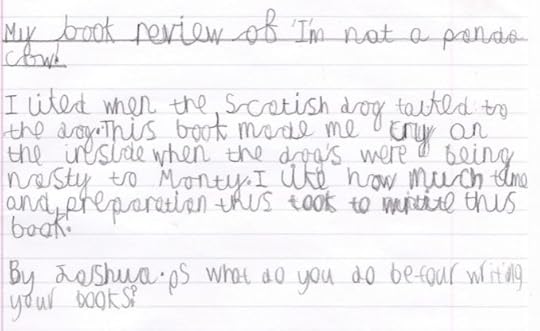 My book review of 'I'm not a panda
cow'.
I liked when the Scotish dog talked to
the dog. This book made me cry on
the inside when the dog's were being
nasty to Monty. I like how much time
and preparation this took to write this
book.
By Joshua. ps what do you do be-four writing
your books?